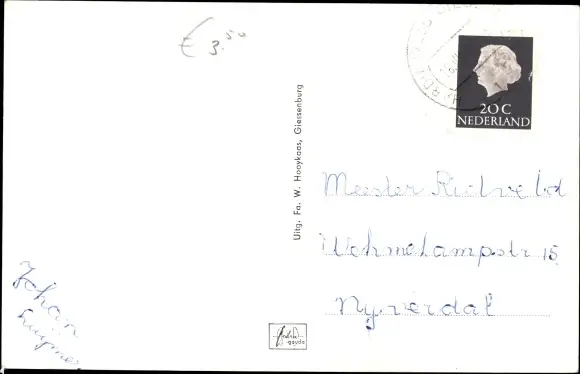 € 3.50
20 C
NEDERLAND
Uitg. Fa. W. Hooykaas, Giessenburg
Meester Rietveld
15
Nyverdal
Johan
gouda